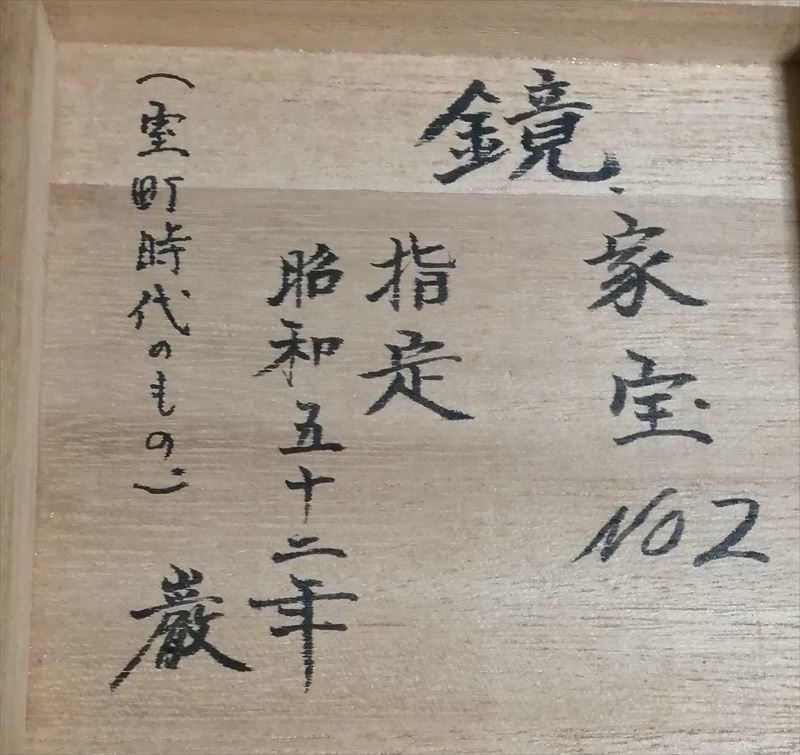 鏡
家宝 NO2
指定
昭和五十二年
(室町時代のもの)
巌